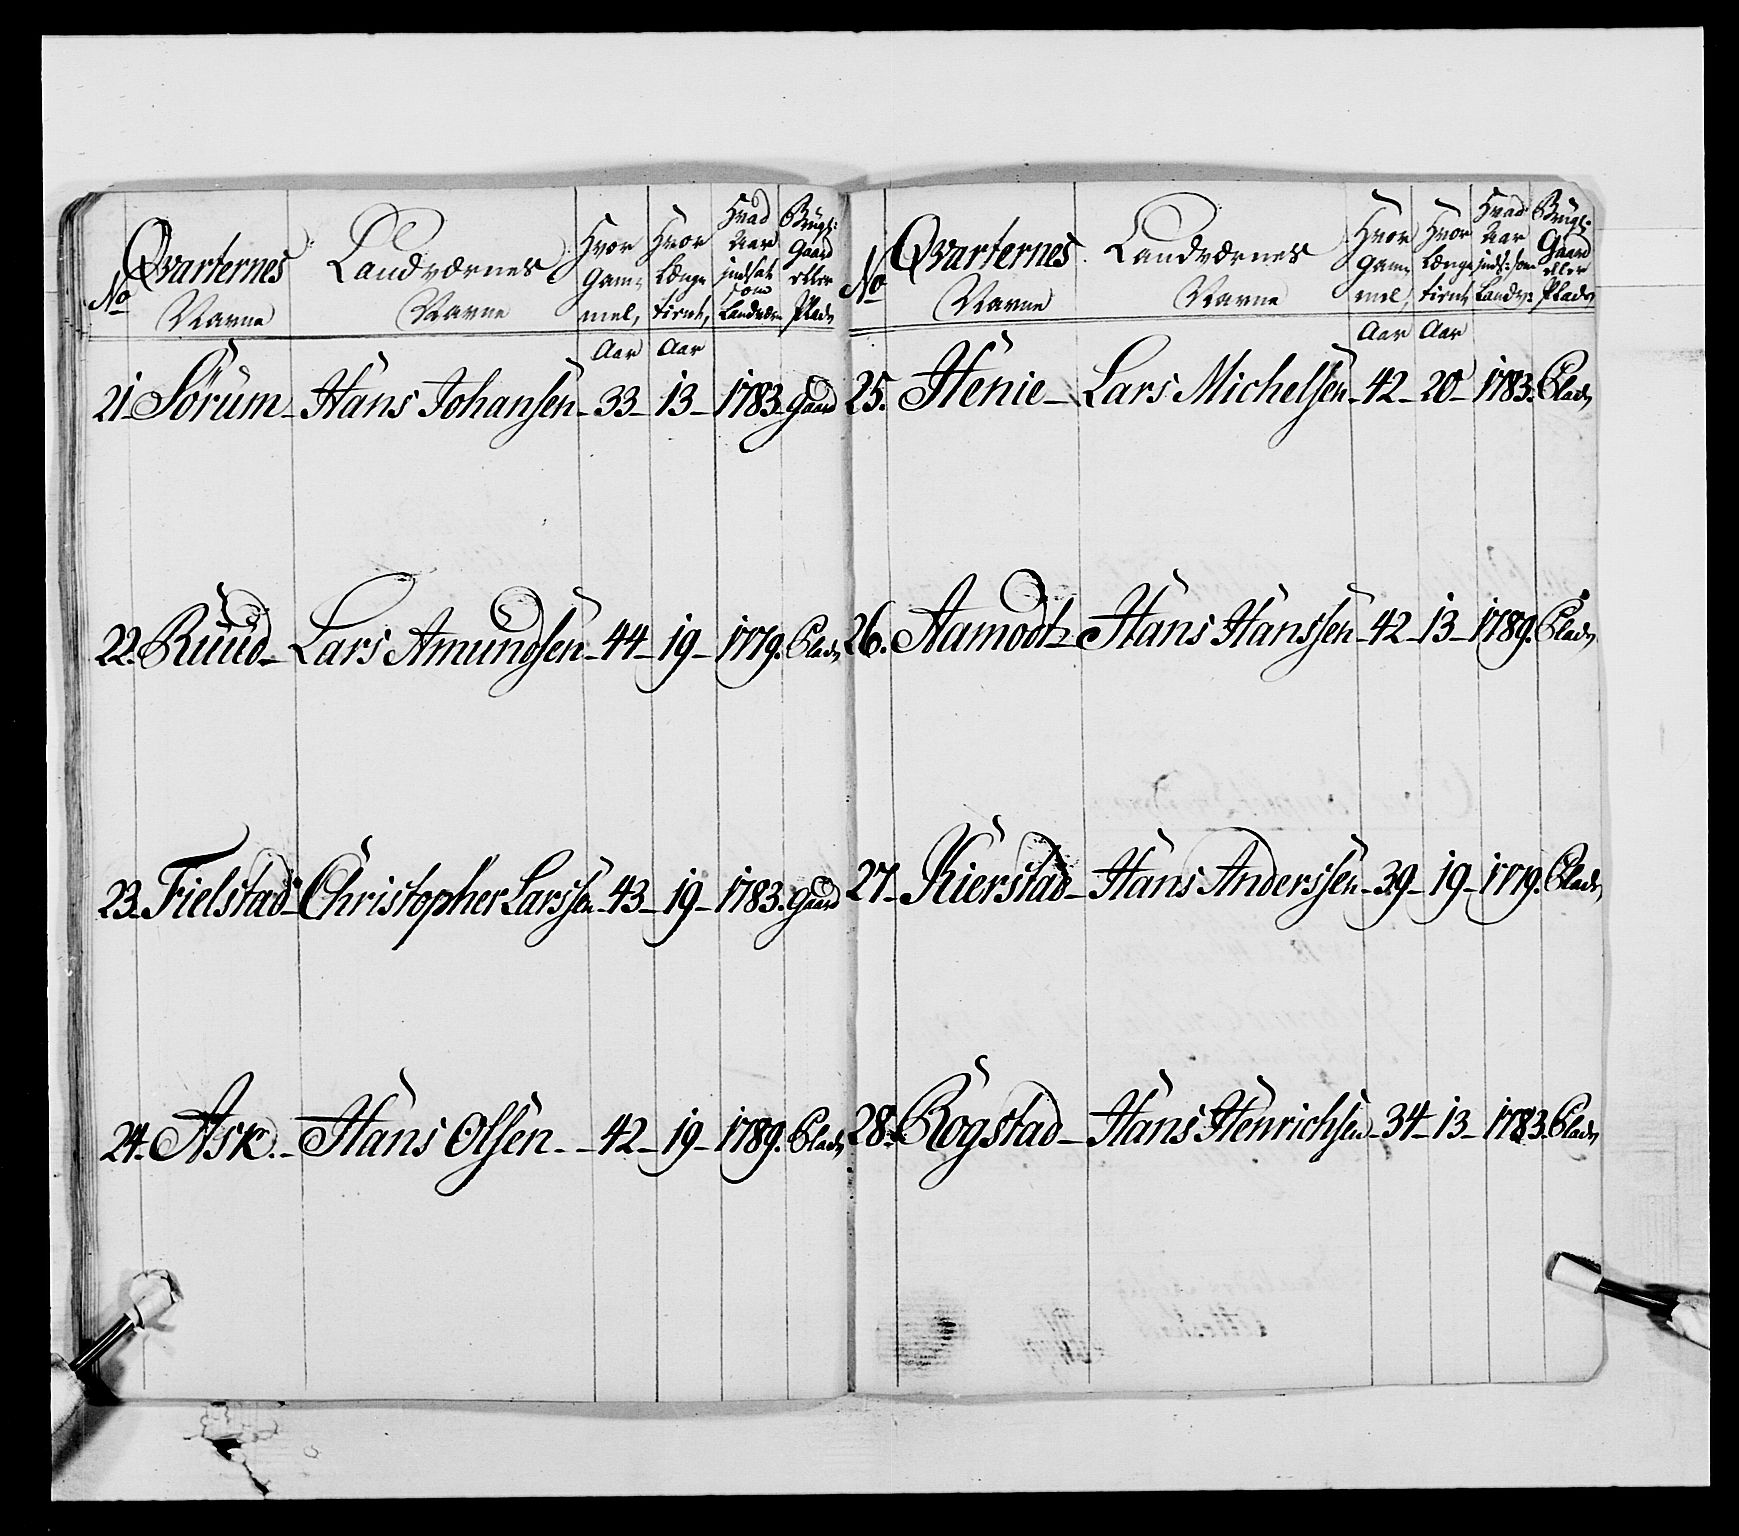 No
Qvarternes Navne
Landværnes Navne
Hvor Gam= mel,
Hvor Længe tient,
Hvad Aar indsat som Landvær
Brüg: Gaard eller Plads
Aar Aar
21. Sörum_ Hans Johansen_ 33_ 13_ 1783. Gaard
22. Ruud_ Lars Amundsen_ 44_ 19_ 1779. Plads
23. Fielstad_ Christopher Larssen_ 43_ 19_ 1783. Gaard
24. Ask._ Hans Olsen._ 42_ 19_ 1789. Plads
No
Qvarternes Navne
Landværnes Navne
Hvor Gam= mel,
Hvor Længe tient,
Hvad Aar inds: som Landv:
Brügt: Gaard eller Plads
Aar Aar
25. Henie_ Lars Michelsen_ 42_ 20_ 1783. Plads
26. Aamodt_ Hans Hanssen_ 42_ 13_ 1789. Plads
27._ Kierstad_ Hans Anderssen_ 39_ 19_ 1779. Plads
28. Rogstad_ Hans Henrichsen_ 34_ 13_ 1783. Plads